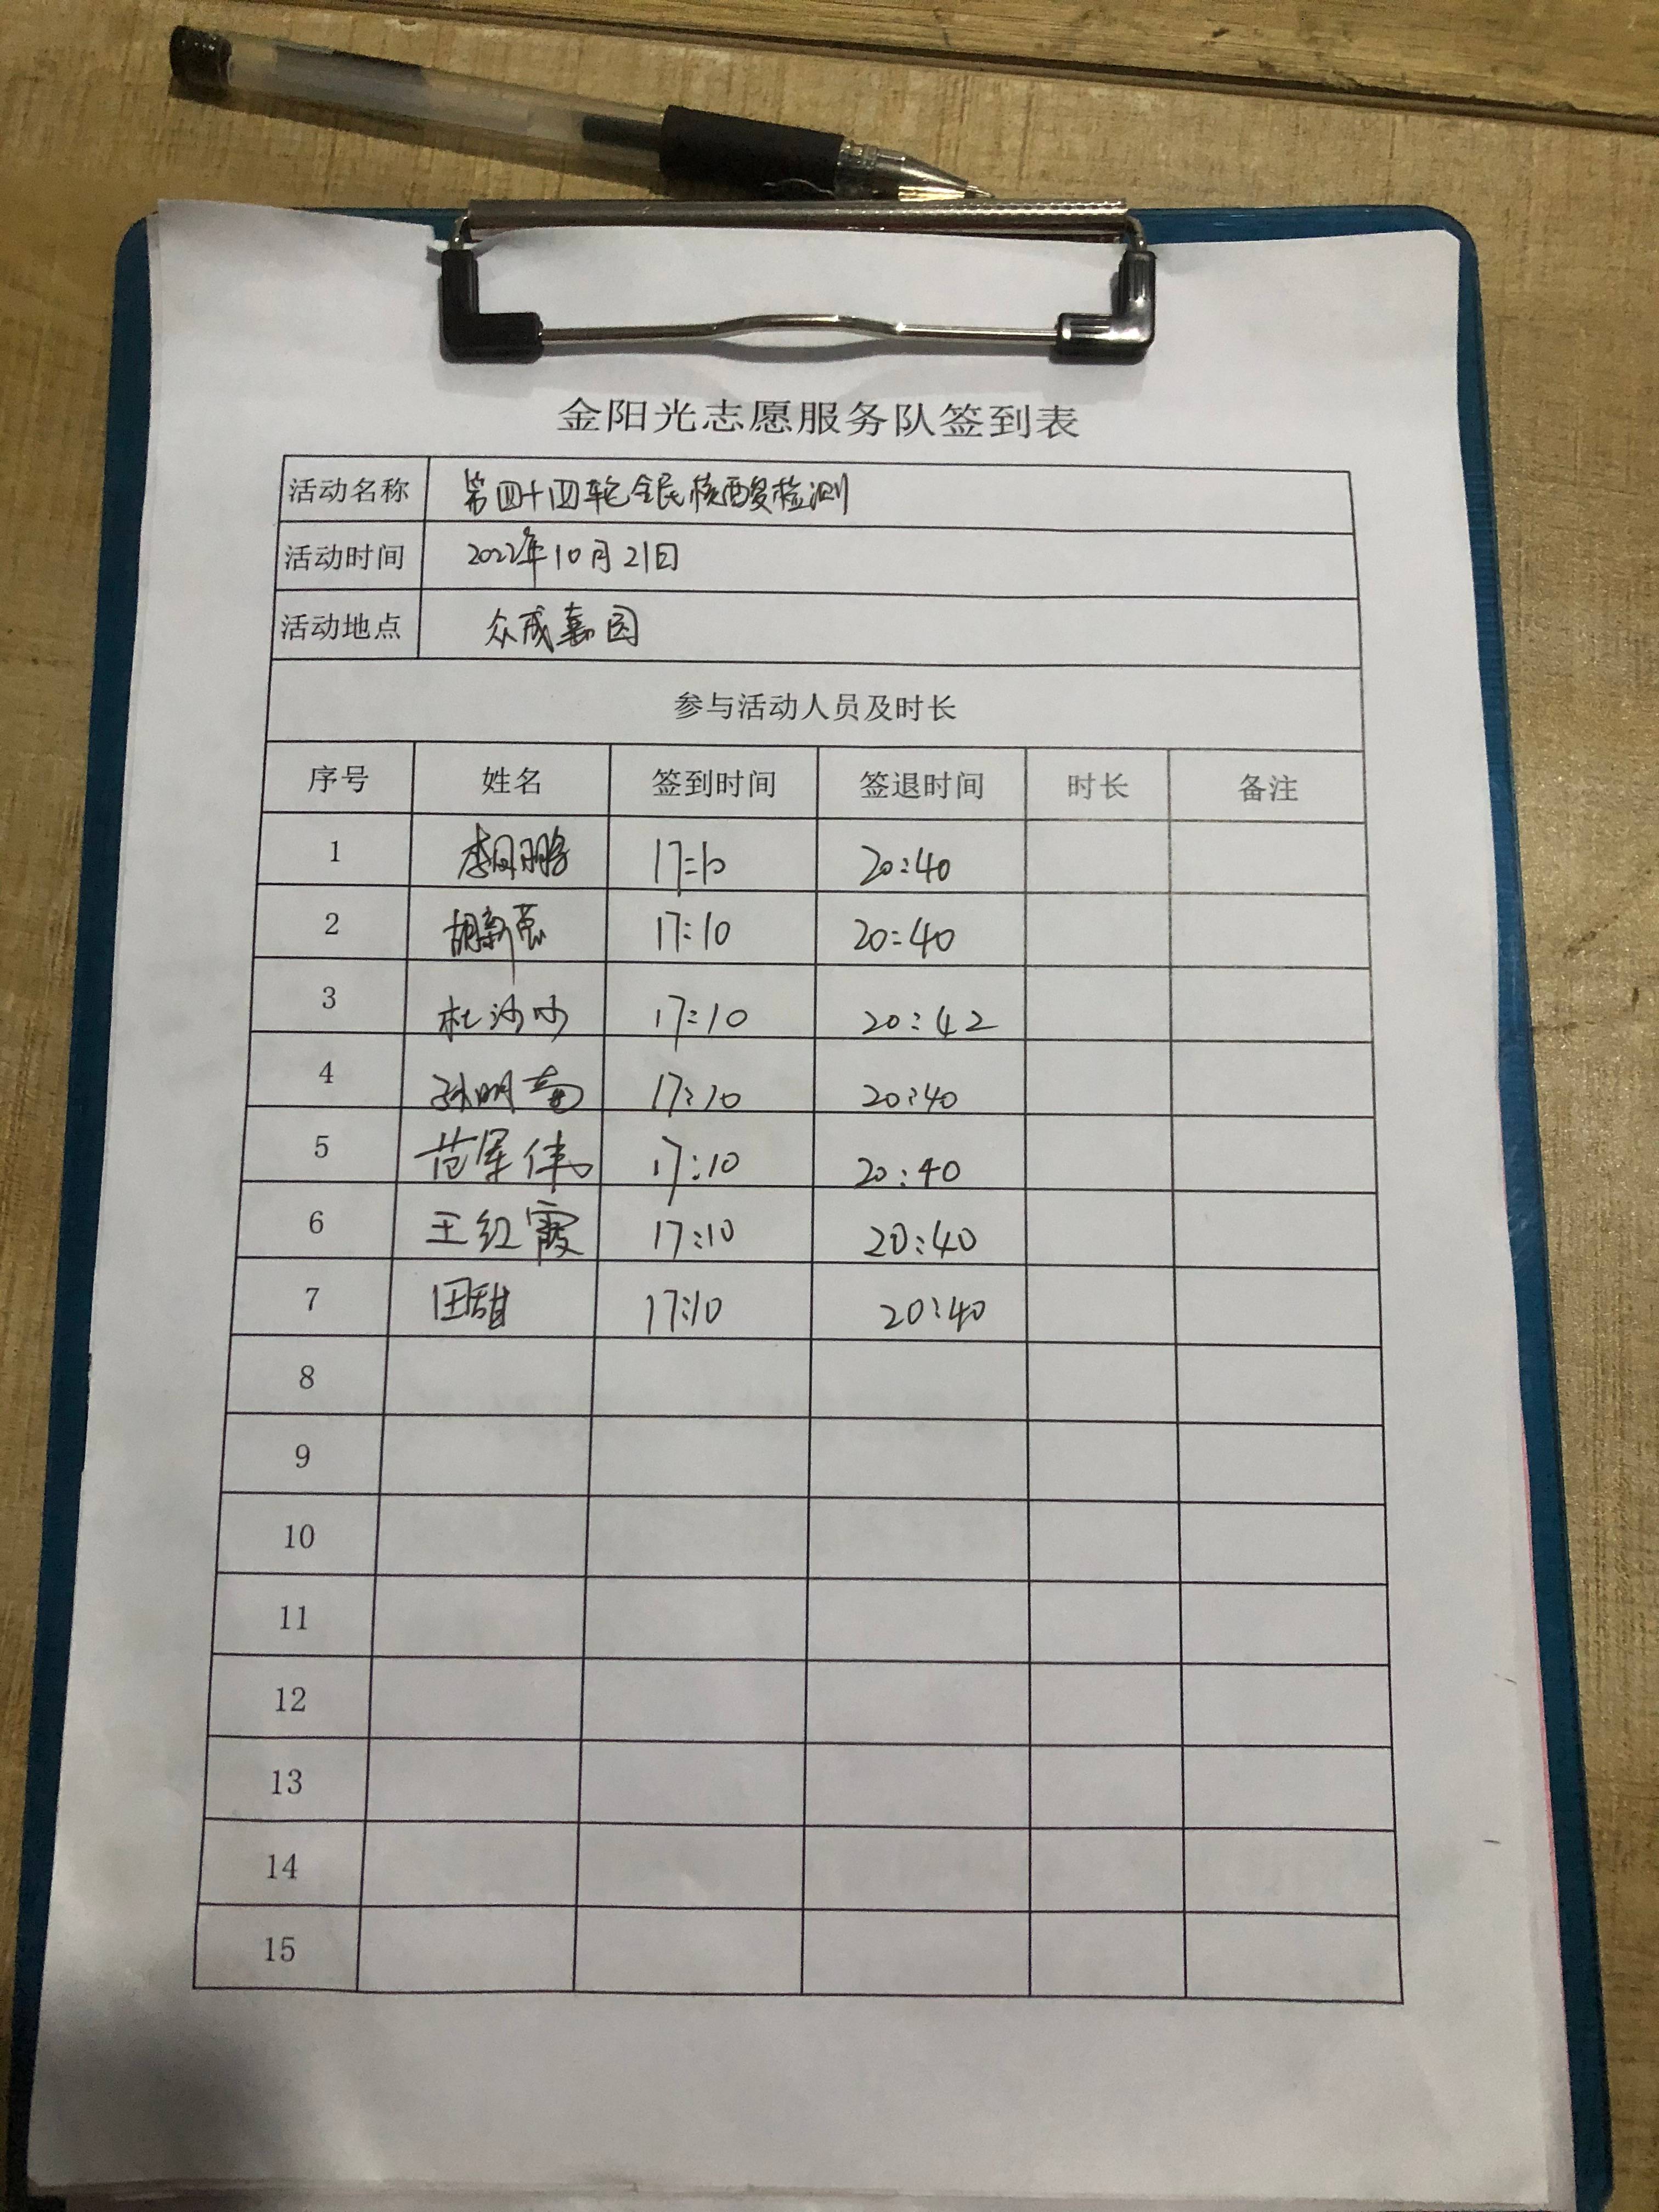 金阳光志愿服务队签到表
活动名称 第四十四轮全民核酸检测
活动时间 2022年10月21日
活动地点 众成嘉园
参与活动人员及时长
序号 姓名 签到时间 签退时间 时长 备注
1 李凤鹏 17:10 20:40
2 胡新 17:10 20:40
3 杜沙沙 17:10 20:42
4 孙明 17:10 20:40
5 范军伟 17:10 20:40
6 王红霞 17:10 20:40
7 田甜 17:10 20:40
8
9
10
11
12
13
14
15